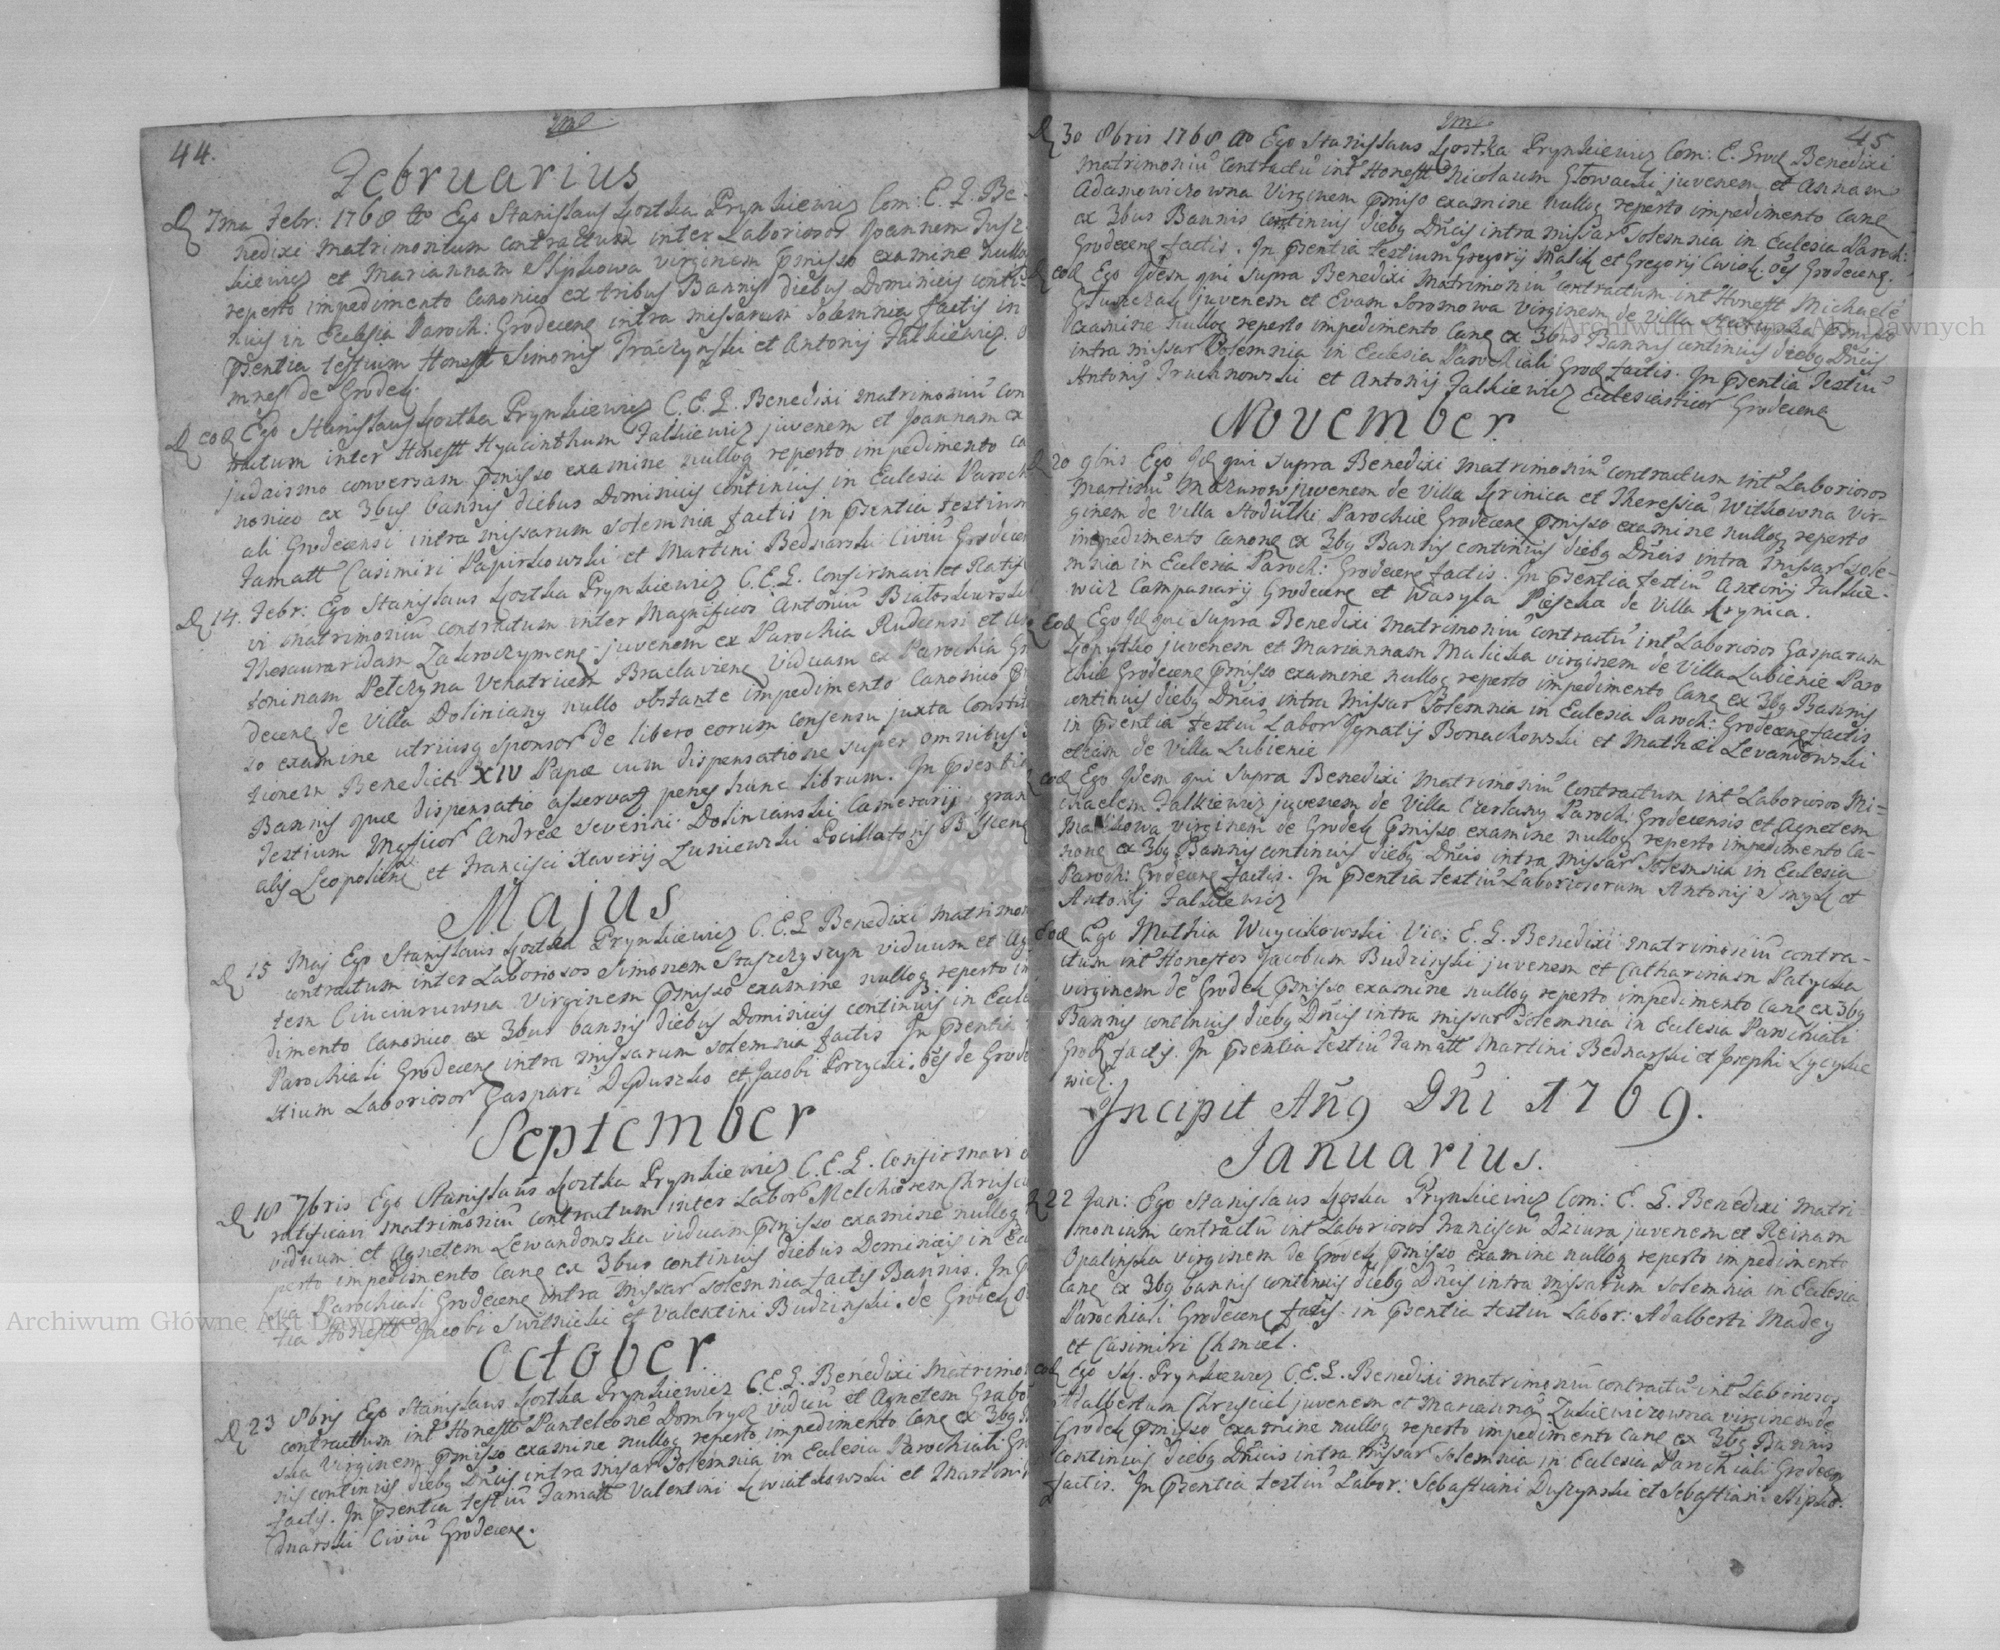 44.
Februarius
D 7ma Febr: 1768 Ego Stanislaus Prynkiewicz Com: E. G. Be-
nedixi matrimonium contractum inter Laboriosos Joannem Jusz
kiewicz et Mariannam virginem pmisso examine nullo
reperto impedimento Canonico ex tribus Bannis diebus Dominicis conti-
nuis in Eclesia Paroch: Grodecens intra missarum solemnia factis in
psentia testium Honest Simonis et Antonij Falkiewicz
mnes de Grodek
D eod Ego Stanislaus Prynkiewicz C. E. G. Benedixi matrimoniu con
tractum inter Honestt Hyacinthum Falkiewicz juvenem et Joannam ex
judaismo conversam pmisso examine nulloq reperto impedimento ca
nonico ex 3bus bannis diebus Dominicis continuis in Eclesia Paroch
ali Grodecensi intra missarum solemnia factis in psentia testium
Famatt Casimiri Papirkowski et Martini Bednarski Civiu Grodecen
D 14. Febr: Ego Stanislaus Prynkiewicz C. E. G. confirmavi et Ratifi
vi matrimoniu contractum inter Magnificos Antoniu
Thesauraridam Zakroczymens juvenem ex Parochia Rudensi et An
toninam Pełczyna Venatricem Braclaviens viduam ex Parochia Gro
decens de Villa Doliniany nullo obstante impedimento Canonico
so examine utriusq sponsor de libero eorum consensu juxta Constitu
tionem Benedicti XIV Papæ cum dispensatione super omnibus
Bannis quæ dispensatio asservat penes hunc librum. In psentia
Testium Andreæ Severini Dolinianski Camerarij gran
alis Leopoliens et Francisci Xaverij Łuniewski Pocillatoris
Majus
D 15 Maj Ego Stanislaus Prynkiewicz C. E. G. Benedixi matrimon
contractum inter Laboriosos Simonem Staszczyszyn viduum et Agn
tem Cinciurowna Virginem pmisso examine nulloq reperto im
dimento Canonico ex 3bus bannis diebus Dominicis continuis in Ecle
Parochiali Grodecens intra missarum solemnia factis In psentia
stium Laboriosor Gaspari Deduszko et Jacobi Porzycki. oes de Grode
September
D 18 7bris Ego Stanislaus Prynkiewicz C. E. G. Confirmavi
ratificavi matrimoniu contractum inter Labor Melchiorem
viduum et Agnetem Lewandowska viduam pmisso examine nulloq
perto impedimento Canc ex 3bus continuis diebus Dominicis in Ec
sia Parochiali Grodecens intra missar solemnia factis Bannis. In
tia Honestt Jacobi Switnicki et Valentini Budzinski. de Grodek
October.
D 23 8bris Ego Stanislaus Prynkiewicz C. E. G. Benedixi Matrimo
contractum int Honestt Panteleone viduu et Agnetem Grabo
ska Virginem pmisso examine nulloq reperto impedimento Canc ex 3bq
nis continuis diebq Dnicis intra missar solemnia in Eclesia Parochiali
factis. In psentia testiu Famatt Valentini Kwiatkowski et Martini
dnarski Civiu Grodecens.
45
D 30 8bris 1768 Ego Stanislaus Prynkiewicz Com: E. Grod Benedixi
matrimoniu contractu int Honestt Nicolaum Głowacki juvenem et Annam
Adamowiczowna Virginem pmisso examine nulloq reperto impedimento Canc
ex 3bus Bannis continuis diebq Dnicis intra missar solemnia in Eclesia Paroch:
Grodecens factis. In psentia testium Gregorij et Gregorij oes Grodecens.
eod Ego Idem qui supra Benedixi Matrimoniu contractum int Honestt Michaele
juvenem et Evam virginem de Villa pmisso
examine nulloq reperto impedimento Canc ex 3bus Bannis continuis diebq Dnicis
intra missar solemnia in Eclesia Parochiali Grod factis. In psentia Testiu
Antonij et Antonij Falkiewicz Eclesiasticor Grodecens
November.
D 20 9bris Ego Id qui supra Benedixi Matrimoniu contractum int Laboriosos
Martinu Mazurow juvenem de Villa et Theressia Witkowna Vir-
ginem de Villa Stodułki Parochiæ Grodecens pmisso examine nulloq reperto
impedimento Canonc ex 3bq Bannis continuis diebq Dnicis intra missar sole-
mnia in Eclesia Paroch: Grodecens factis. In psentia testiu Antonij Falkie-
wicz Campanarij Grodecens et Wasyla de Villa
Eod Ego Id qui supra Benedixi matrimoniu contractu int Laboriosos Gasparum
juvenem et Mariannam virginem de Villa Lubienie Paro
chiæ Grodecens pmisso examine nulloq reperto impedimento Canc ex 3bq Bannis
continuis diebq Dnicis intra missar solemnia in Eclesia Paroch: Grodecens factis
in psentia testiu Labor Ignatij Bonachowski et Mathæi Levandowski
etiam de Villa Lubienie
eod Ego Idem qui supra Benedixi Matrimoniu Contractum int Laboriosos Mi-
chaelem Falkiewicz juvenem de Villa Czerlany Paroch: Grodecensis et Agnetem
virginem de Grodek pmisso examine nulloq reperto impedimento Ca-
nonc ex 3bq Bannis continuis diebq Dnicis intra missar solemnia in Eclesia
Paroch: Grodecens factis. In psentia testiu Laboriosorum Antonij et
Antonij Falkiewicz
Eod Ego Mathia Woycikowski Vic: E. G. Benedixi matrimoniu contra-
ctum int Honestos Jacobum Budzinski juvenem et Catharinam Patycka
virginem de Grodek pmisso examine nulloq reperto impedimento Canc ex 3bq
Bannis continuis diebq Dnicis intra missar solemnia in Eclesia Parochiali
Grod factis. In psentia testiu Famatt Martini Bednarski et Josephi
wicz.
Incipit Anq Dni 1769.
Januarius.
D 22 Jan: Ego Stanislaus Prynkiewicz Com: E. G. Benedixi Matri-
monium contractu int Laboriosos Franciscu Dziura juvenem et Reinam
Opalinska virginem de Grodek pmisso examine nulloq reperto impedimento
Canc ex 3bq bannis continuis diebq Dnicis intra missarum solemnia in Eclesia
Parochiali Grodecens factis: in psentia testiu Labor: Adalberti Madey
et Casimiri Chmiel.
eod Ego St. Prynkiewicz C. E. G. Benedixi matrimoniu contractu int Laboriosos
Adalbertum Chrysciel juvenem et Marianna Zukiewiczowna virginem de
Grodek pmisso examine nulloq reperto impedimento Canc ex 3bq Bannis
continuis diebq Dnicis intra missar solemnia in Eclesia Parochiali Grodecens
factis. In psentia testiu Labor: Sebastiani Duszynski et Sebastiani
Archiwum Główne Akt Dawnych
Archiwum Główne Akt Dawnych